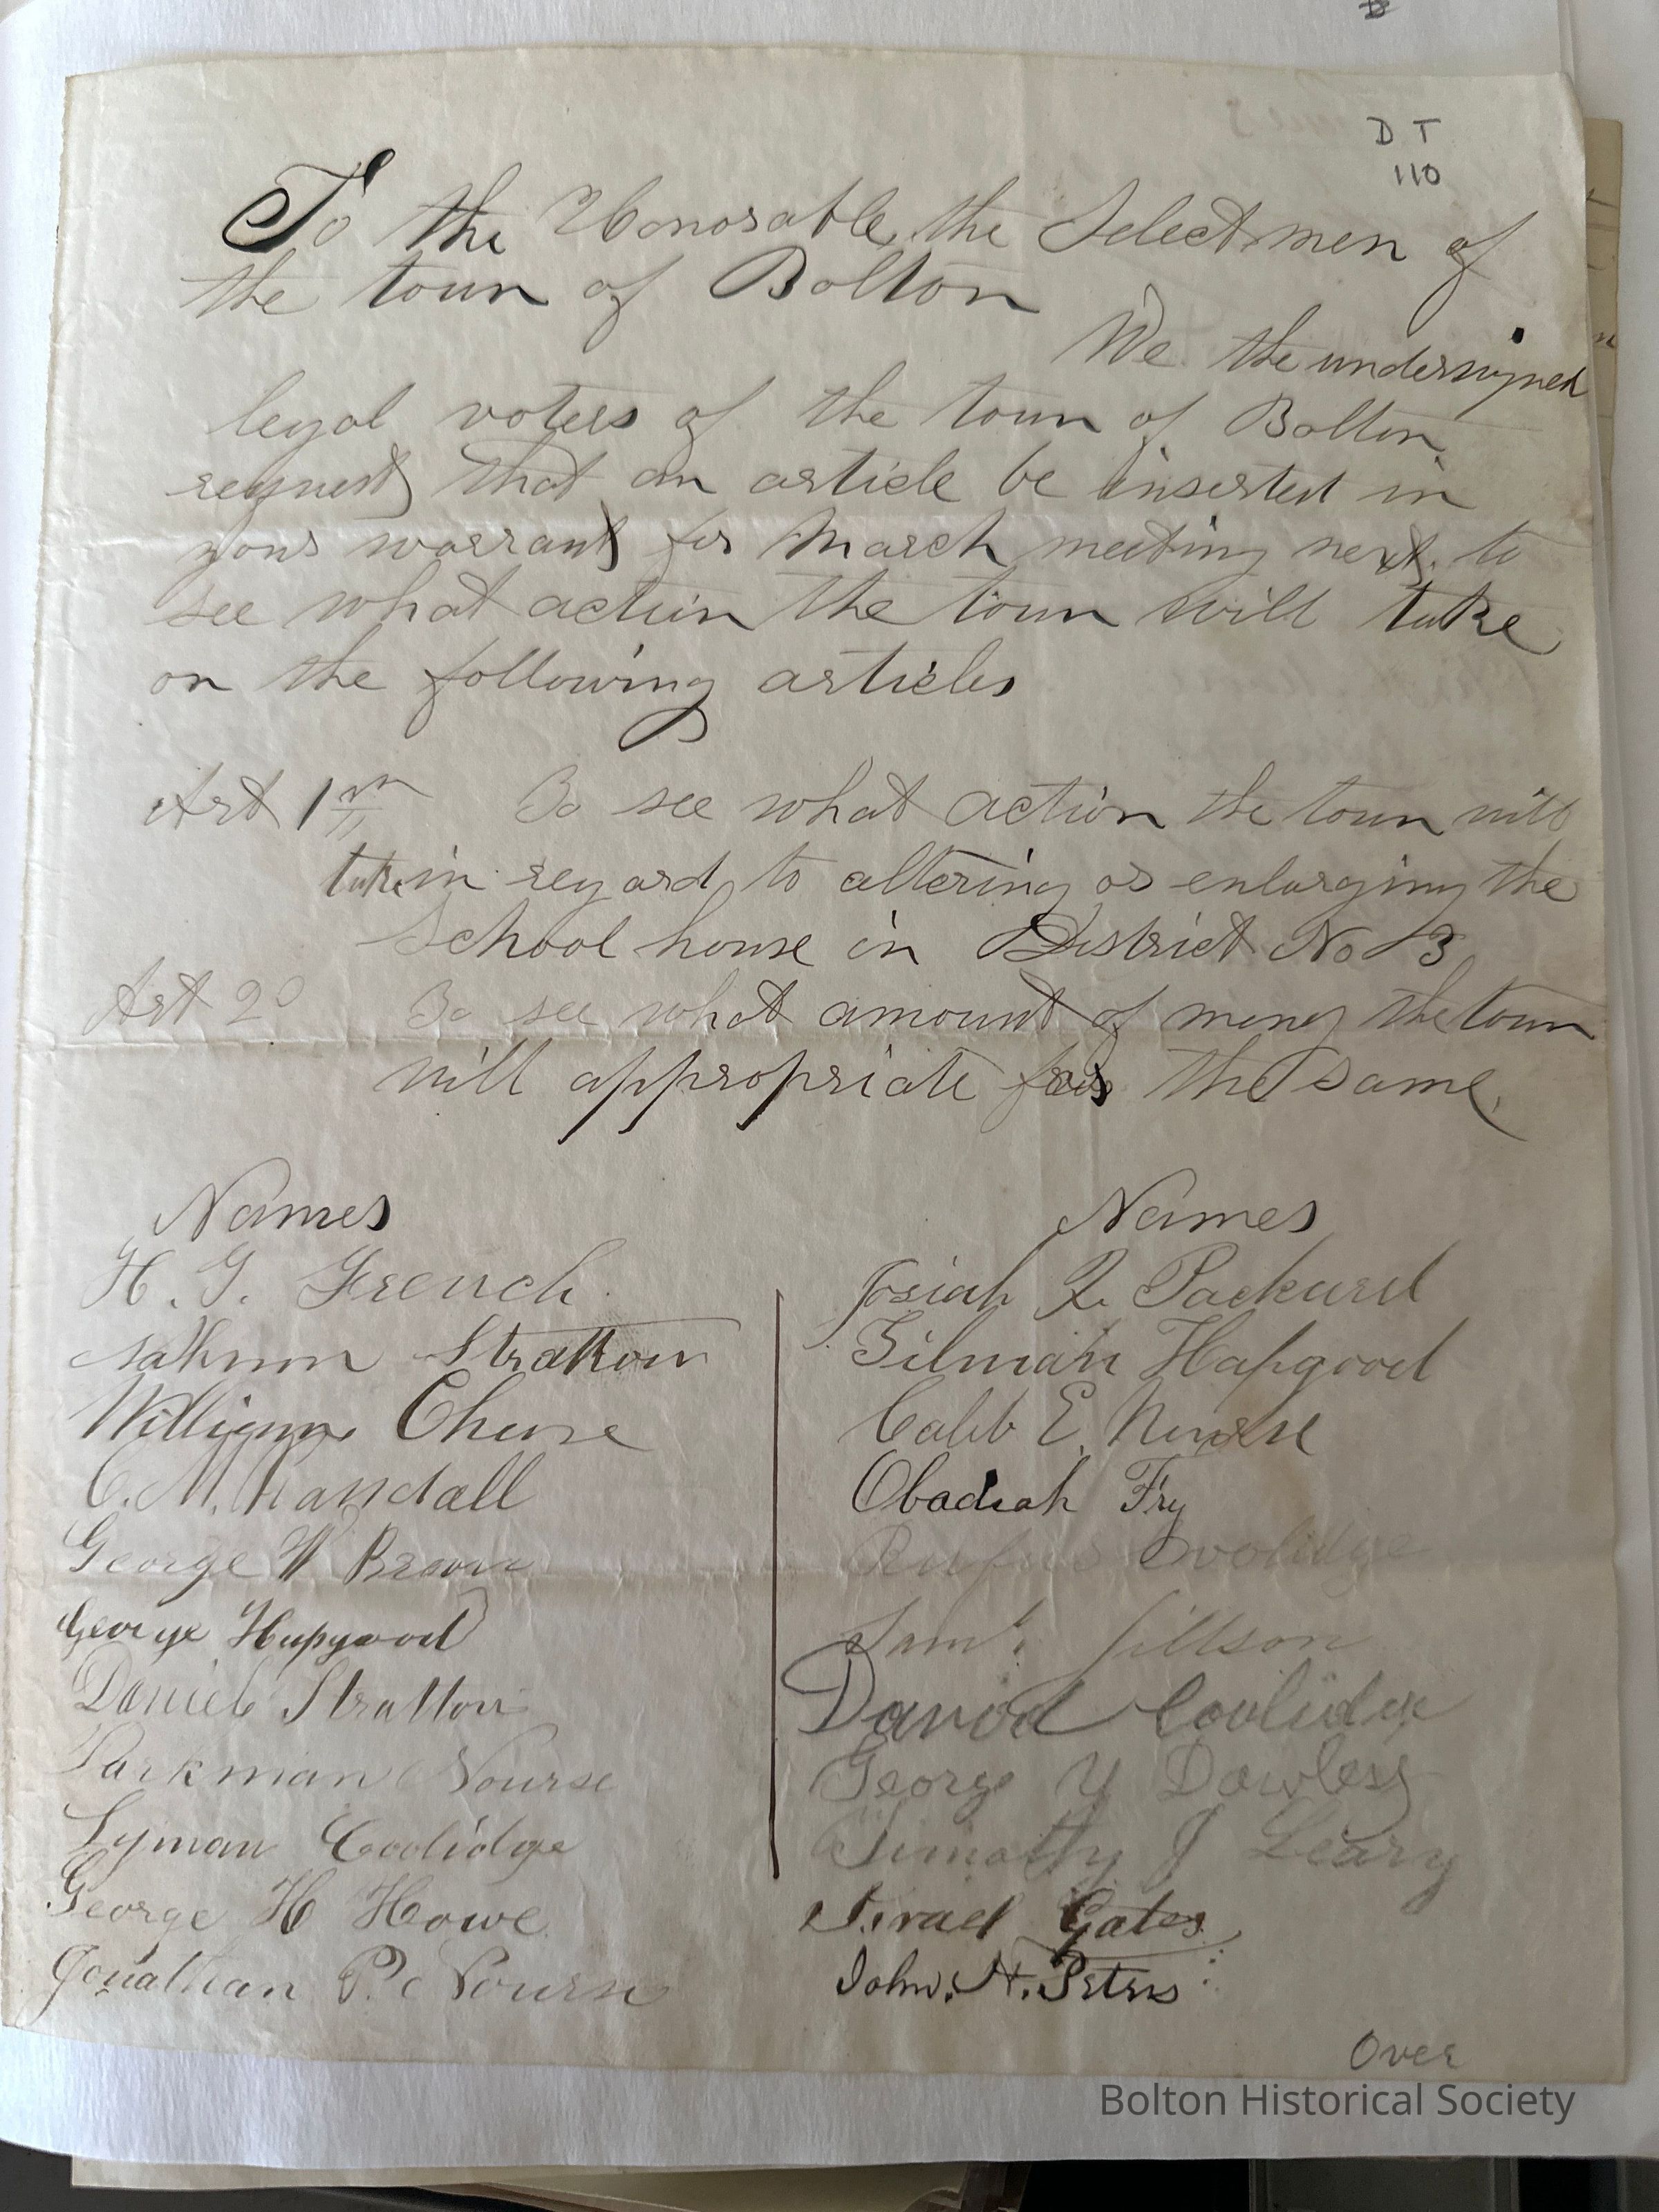 D T
110
To the Honorable, the Selectmen of
the town of Bolton
We the undersigned
legal voters of the town of Bolton
request that an article be inserted in
your warrant for March meeting next. to
see what action the town will take
on the following articles
Art 1st To see what action the town will
take in regard to altering or enlarging the
School house in District No 3
Art 2d To see what amount of money the town
will appropriate for the same.
Names
H. G. French
Nahum Stratton
William Chase
C. M. Randall
George W Brown
George Hapgood
Daniel Stratton
Parkman Nourse
Lyman Coolidge
George H Howe
Jonathan P. Nourse
Names
Josiah Q. Packard
Gilman Hapgood
Caleb E. Nourse
Obadiah Fry
Rufus Coolidge
Saml. Jillson
David Coolidge
George Y Dawless
Timothy J Leary
Israel Gates
John. H. Peters
Over
Bolton Historical Society